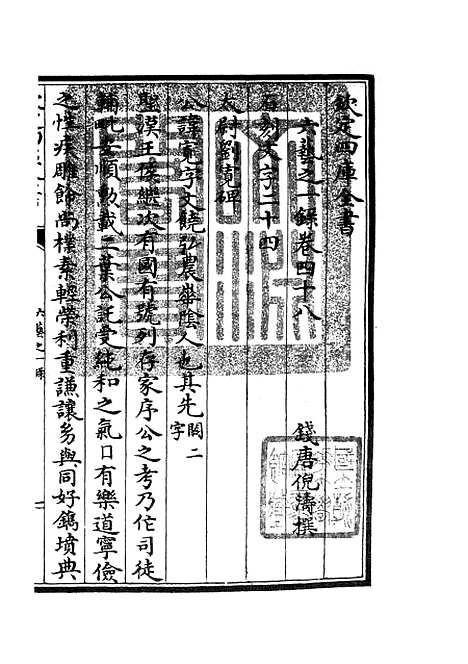 欽定四庫全書
六藝之一錄卷四十八
錢唐倪濤撰
石刻文字二十四
太尉劉寬碑
公諱寬字文饒弘農華陰人也其先闕二字
聖漢王侯繼次有國有號列存家序公之考乃作司徒
輔毗安順勳載二葉公託受純和之氣口有樂道寧儉
之性疾雕飾尚樸素輕榮利重謙讓爰與同好鐫墳典
六藝之一錄